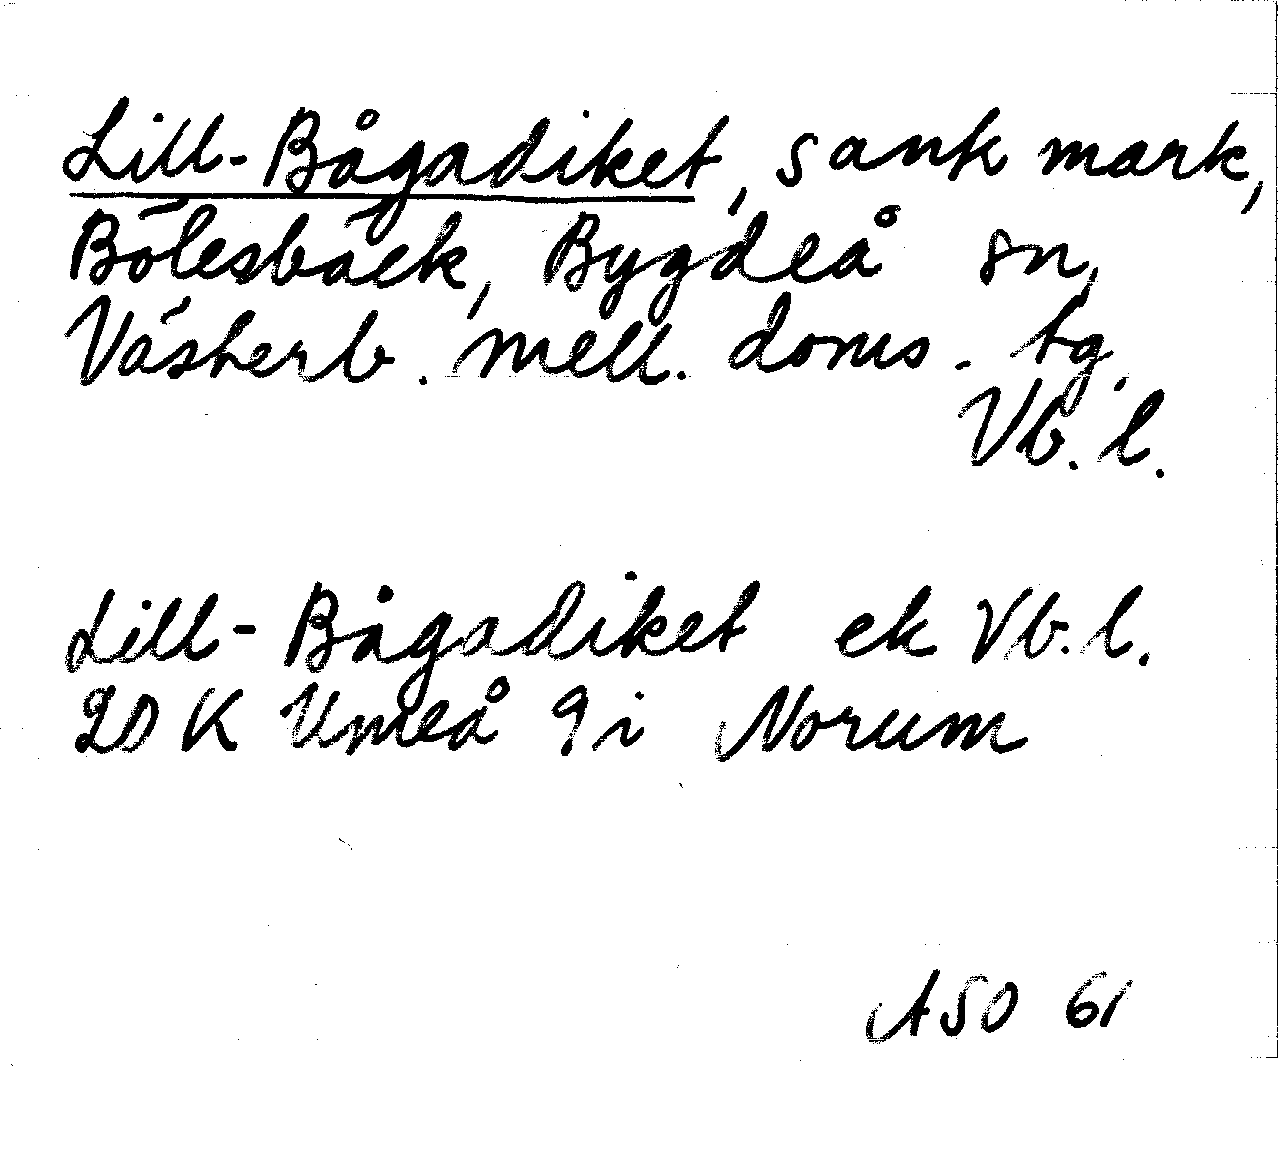 Lill-Bågadiket, sank mark,
Bölesbäck, Bygdeå sn,
Västerb. mell. doms. tg.
Vb. l.
Lill-Bågadiket ek Vb. l.
2D K Umeå 9i Norum
ASO 61